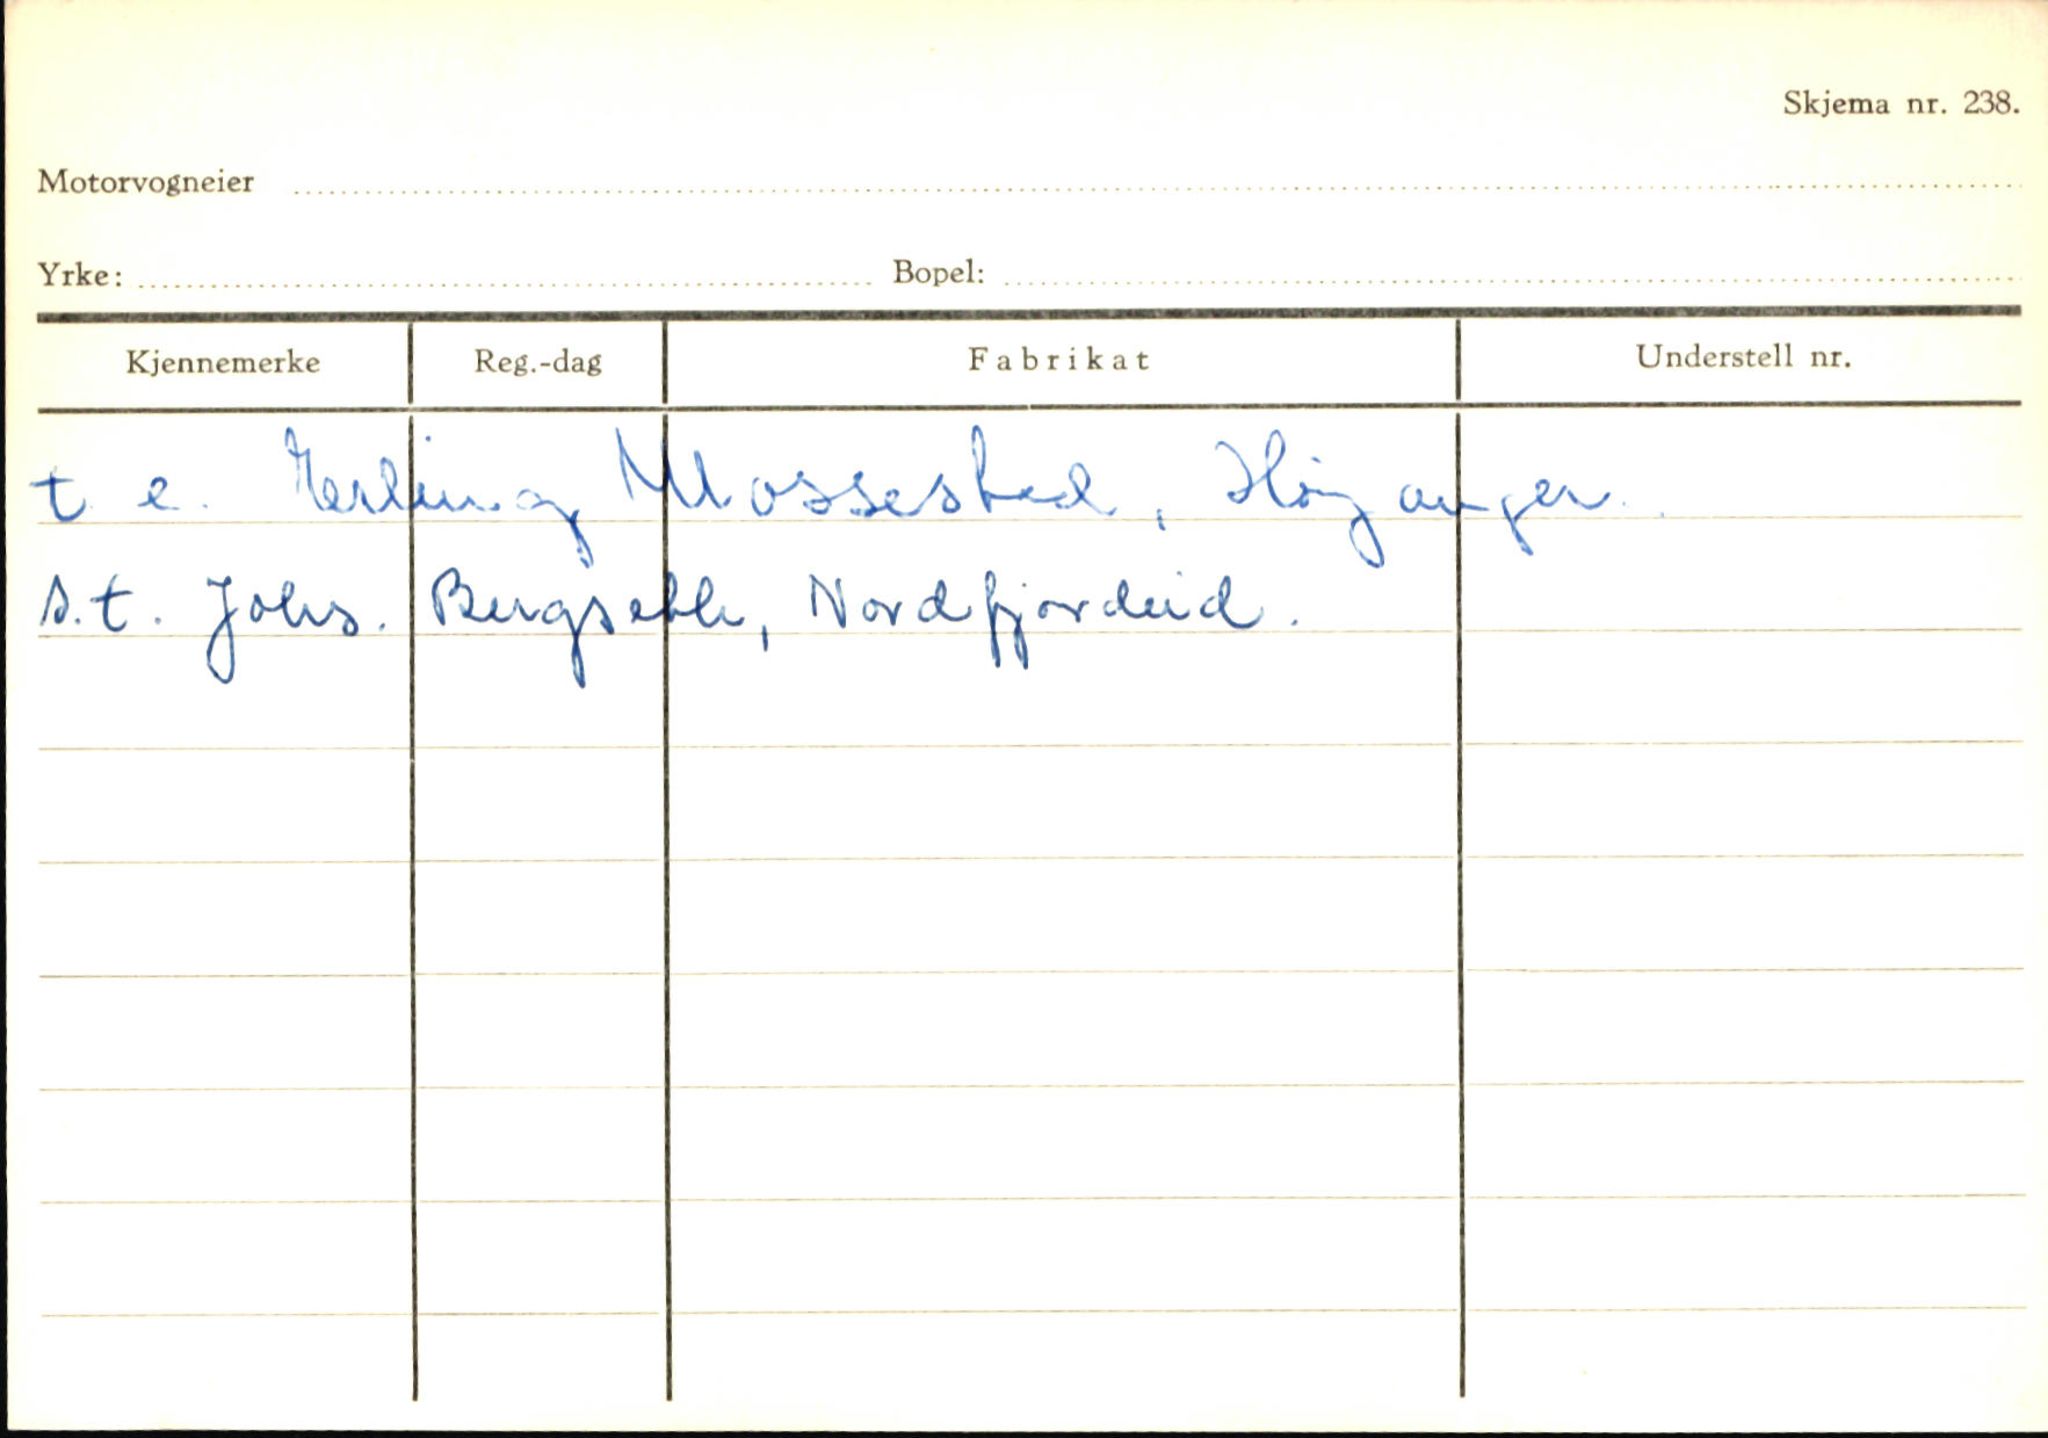 Skjema nr. 238.
Motorvogneier
Yrke: Bopel:
Kjennemerke Reg.-dag Fabrikat Understell nr.
t. e. Erling Mossestad, Höyanger.
s.t. Johs. Bergseth, Nordfjordeid.